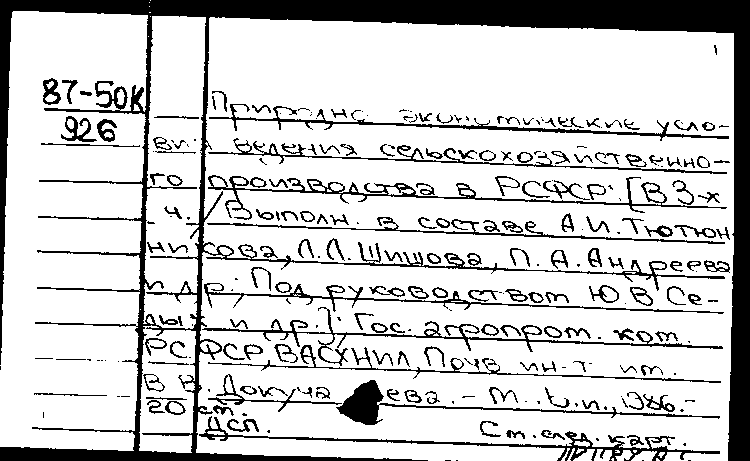 1
87-50К
926
Природно экономические усло-
вия ведения сельскохозяйственно-
го производства в РСФСР: [В 3-х
ч. / Выполн. в составе А.И. Тютюн-
никова, Л.Л. Шишова, П.А. Андреева
и др.; Под руководством Ю.В Се-
дых и др.]; Гос. агропром. ком.
РСФСР, ВАСХНИЛ, Почв ин-т им.
В В. Докучаева. - М.: Б.и., 1986. -
20 см.
Дсп.
См. след. карт.